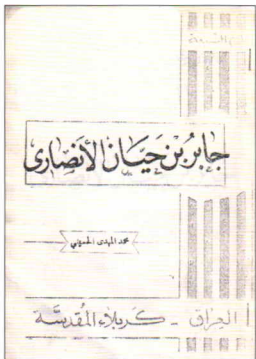 جابر بن حيان الأنصاري
محمد المهدي الحسيني
العراق - كربلاء المقدسة